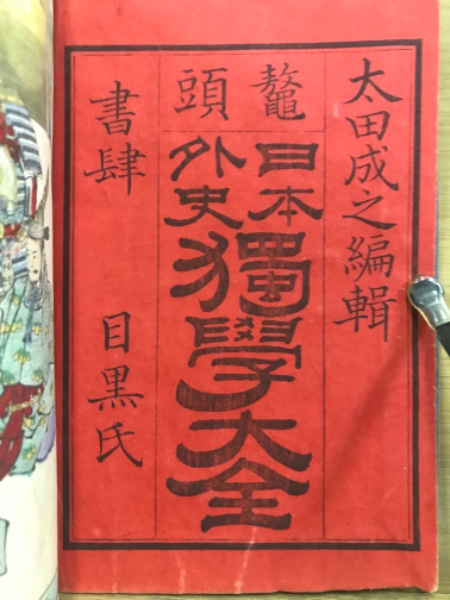 太田成之編輯
鼇頭
日本
外史
獨學大全
書肆 目黒氏